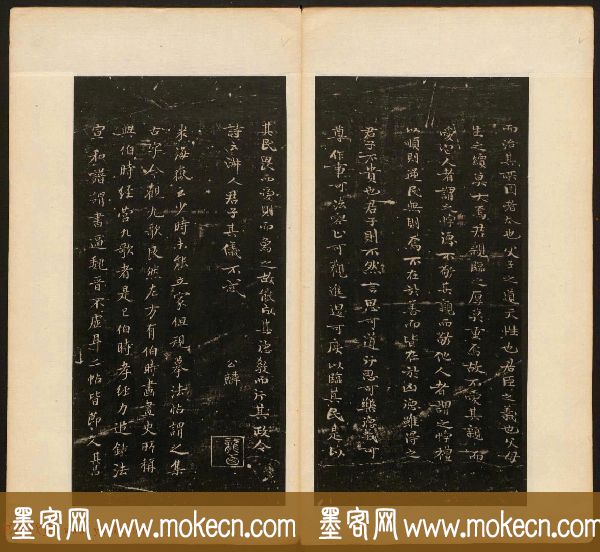 而治其所因者本也父子之道天性也君臣之義也父母
生之續莫大焉君親臨之厚莫重焉故不愛其親而
愛他人者謂之悖德不敬其親而敬他人者謂之悖禮
以順則逆民無則焉不在於善而皆在於凶德雖得之
君子不貴也君子則不然言思可道行思可樂德義可
尊作事可法容止可觀進退可度以臨其民是以
其民畏而愛則而象之故能成其德教而行其政令
詩云淑人君子其儀不忒
公麟
米海嶽云少時未能立家但規摹法帖謂之集
古字今觀九歌良然左方有伯時畫畫史所稱
與伯時經營九歌者是已伯時孝經力追鍾法
宣和譜謂書逼魏晉不虛耳二帖皆節
墨客网 www.mokecn.com
墨客网 www.mokecn.com